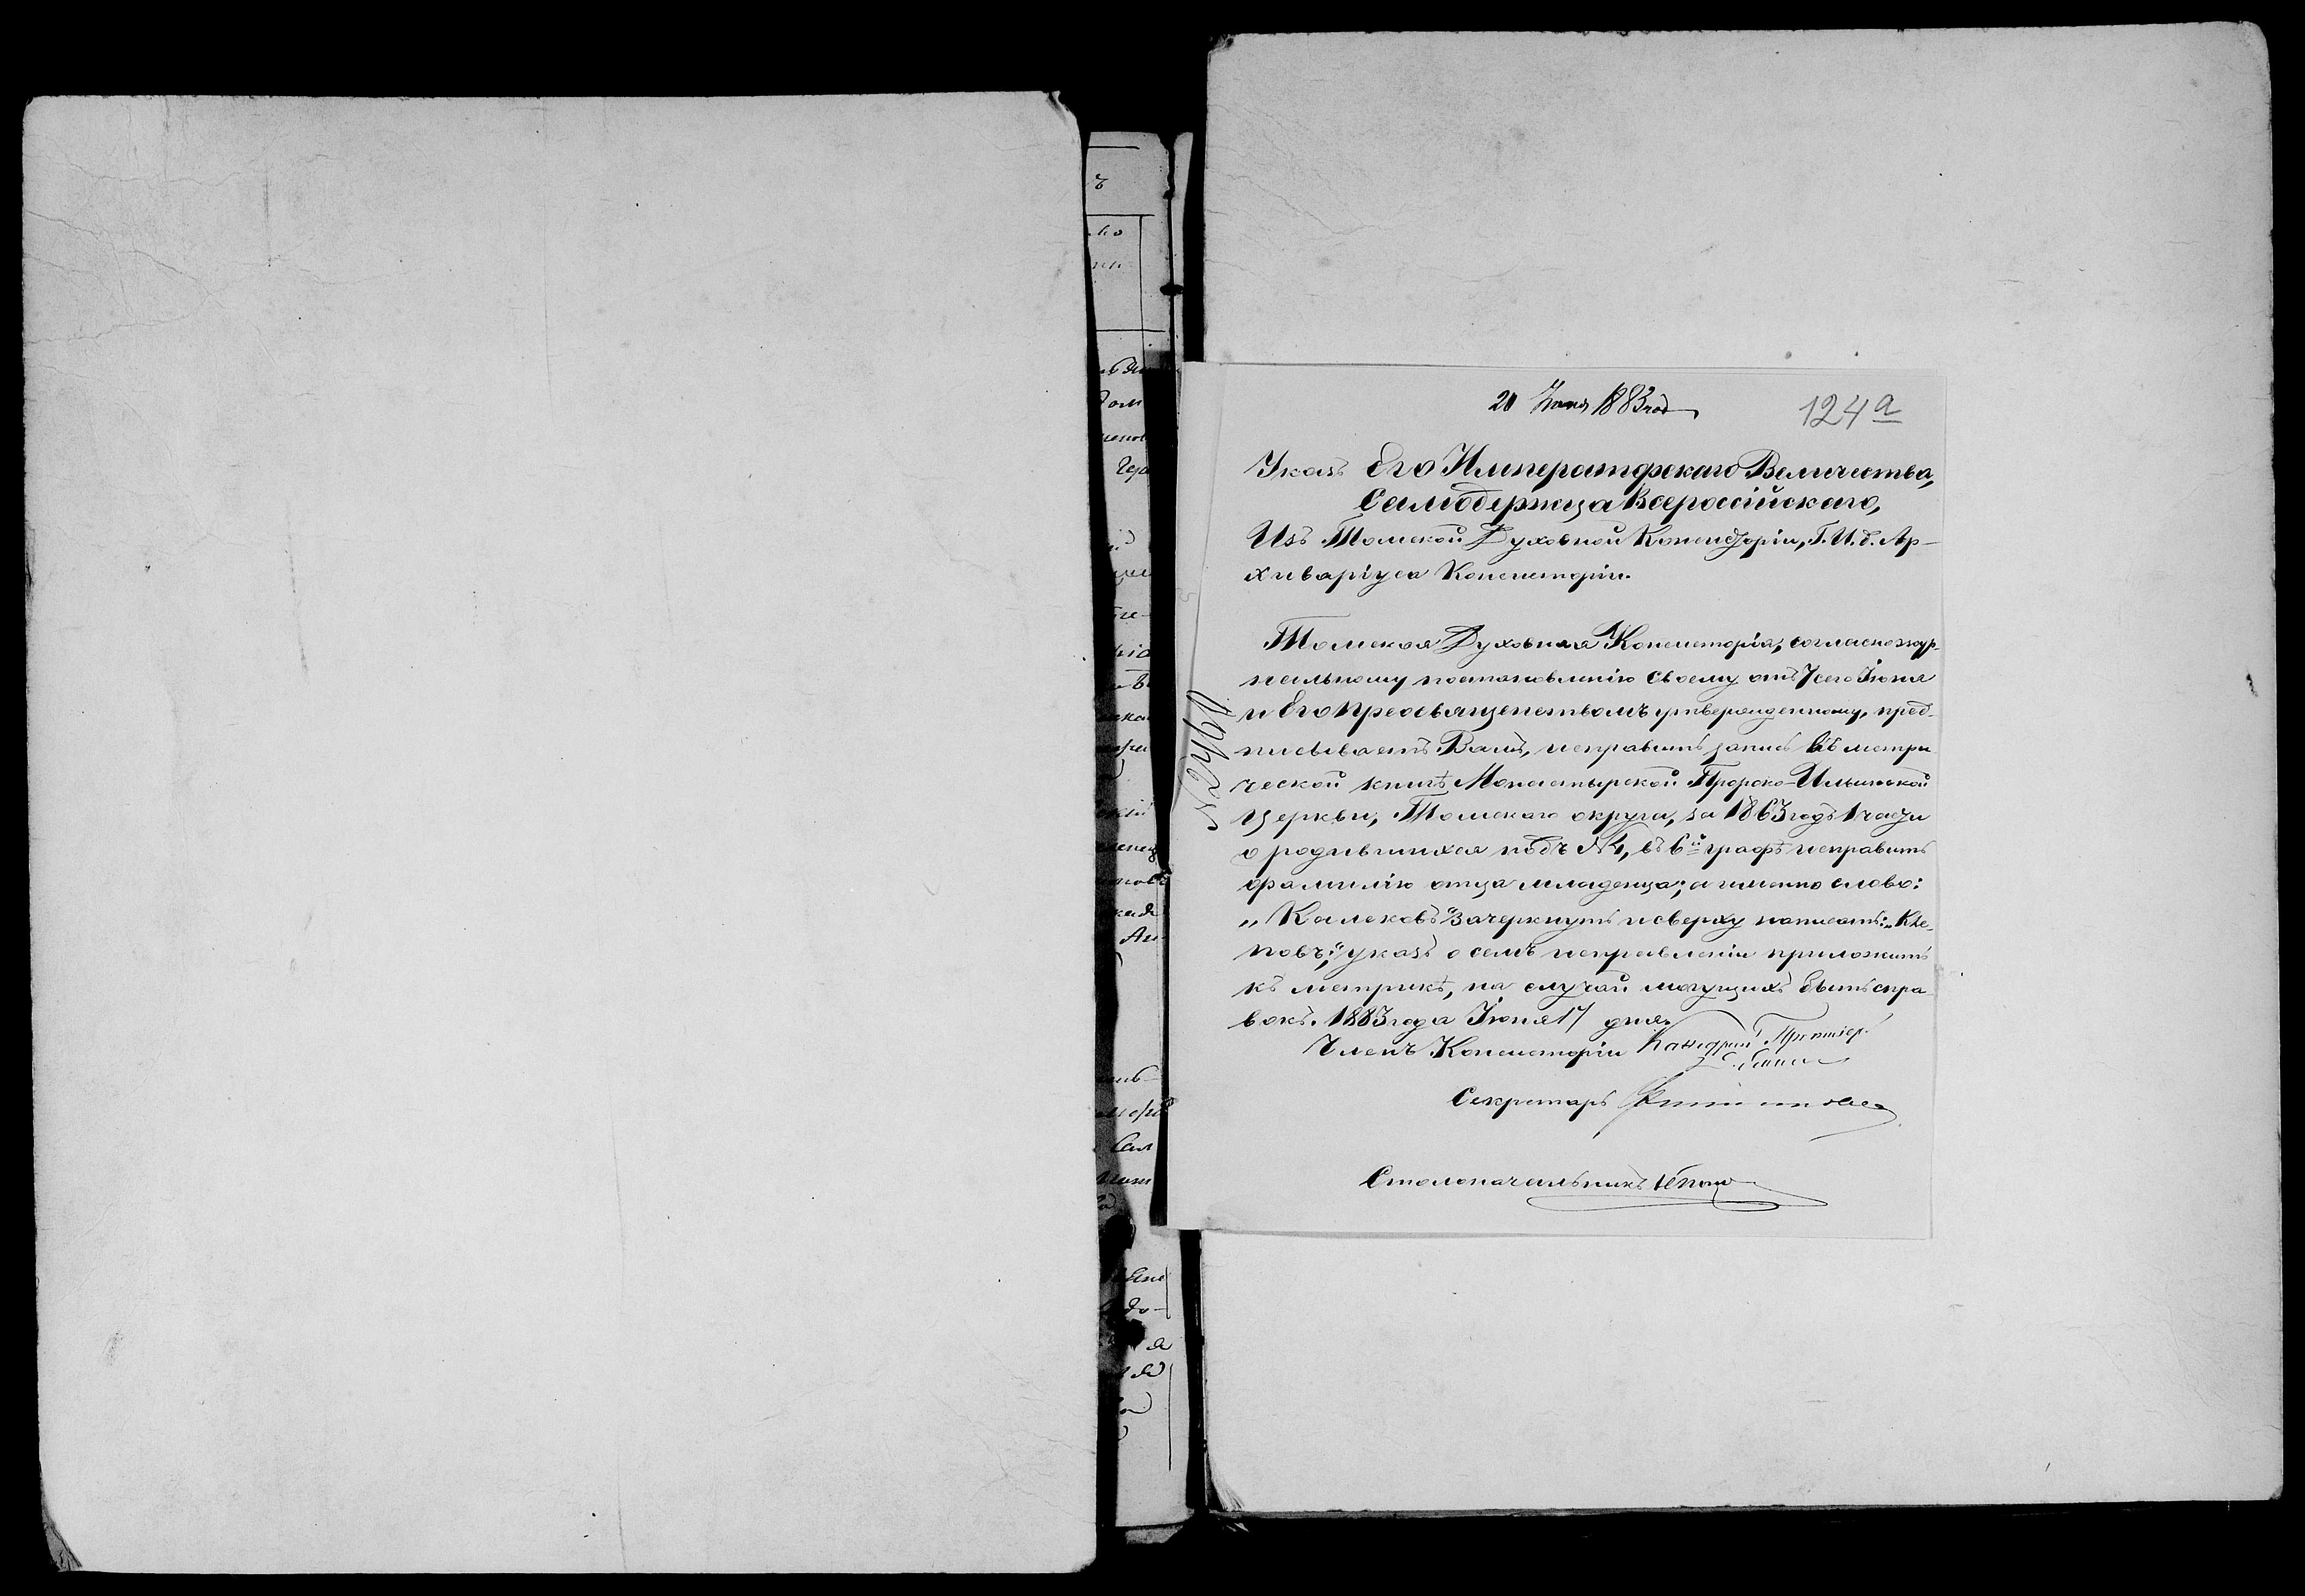 20 Іюня 1883 год
124 а
Указъ Его Императорскаго Величества,
Самодержца Всероссійскаго,
Изъ Томской Духовной Консисторіи, Г. И. д. Ар-
хиваріуса Консисторіи.
Томская Духовная Консисторія, согласно жур-
нальному постановленію своему отъ 7 сего Іюня
и Его Преосвященствомъ утвержденному, пред-
писываетъ Вамъ, исправить запись въ метри
ческой книгѣ Монастырской Пророко-Ильинской
церкви, Томскаго округа, за 1863 годъ 1 части
о родившихся подъ № 1, въ 6й графѣ исправить
фамилію отца младенца; а именно слово:
„Калековъ" зачеркнуть и сверху написать: „Кле-
повъ;" указъ о семъ исправленіи приложить
къ метрикѣ, на случай могущихъ быть спра
вокъ. 1883 года Іюня 17 дня.
Членъ Консисторіи Каѳедрал. Протоіер.
Секретарь
Столоначальникъ
№ 2461